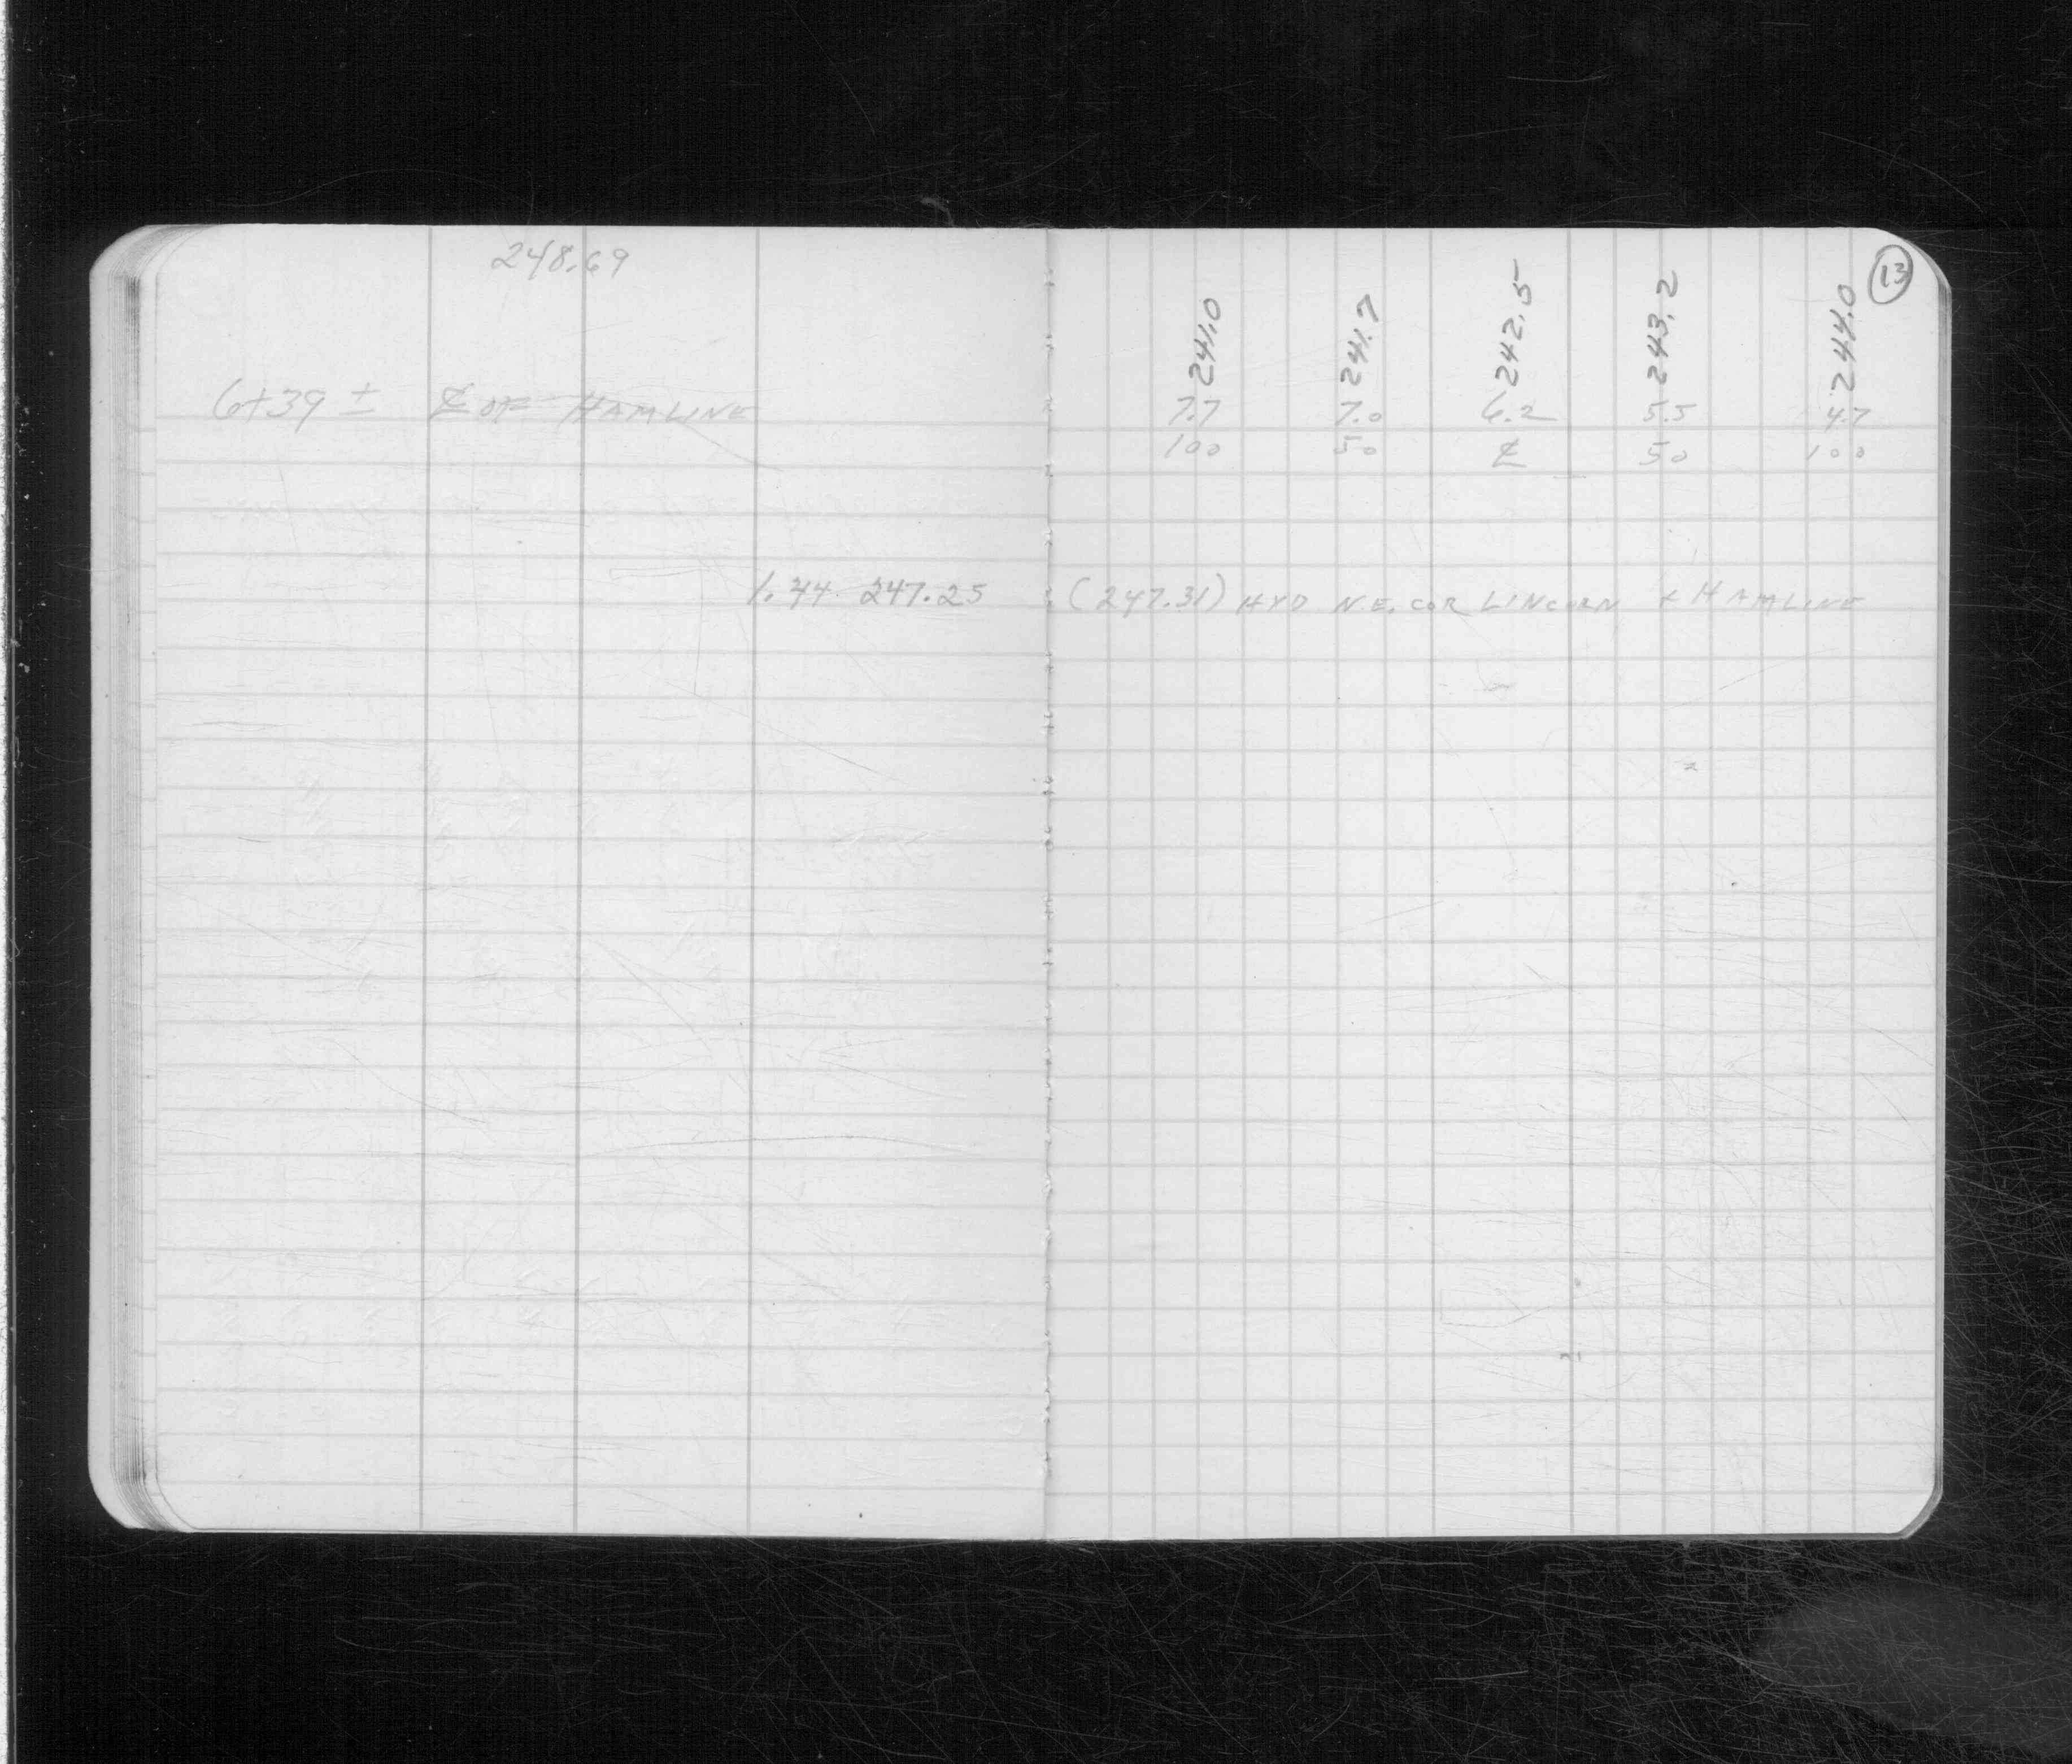 248.69
6+39 ± ℄ OF HAMLINE
1.44 247.25
13
241.0 241.7 242.5 243.2 244.0
7.7 7.0 6.2 5.5 4.7
100 50 ℄ 50 100
(247.31) HYD N.E. COR LINCOLN & HAMLINE